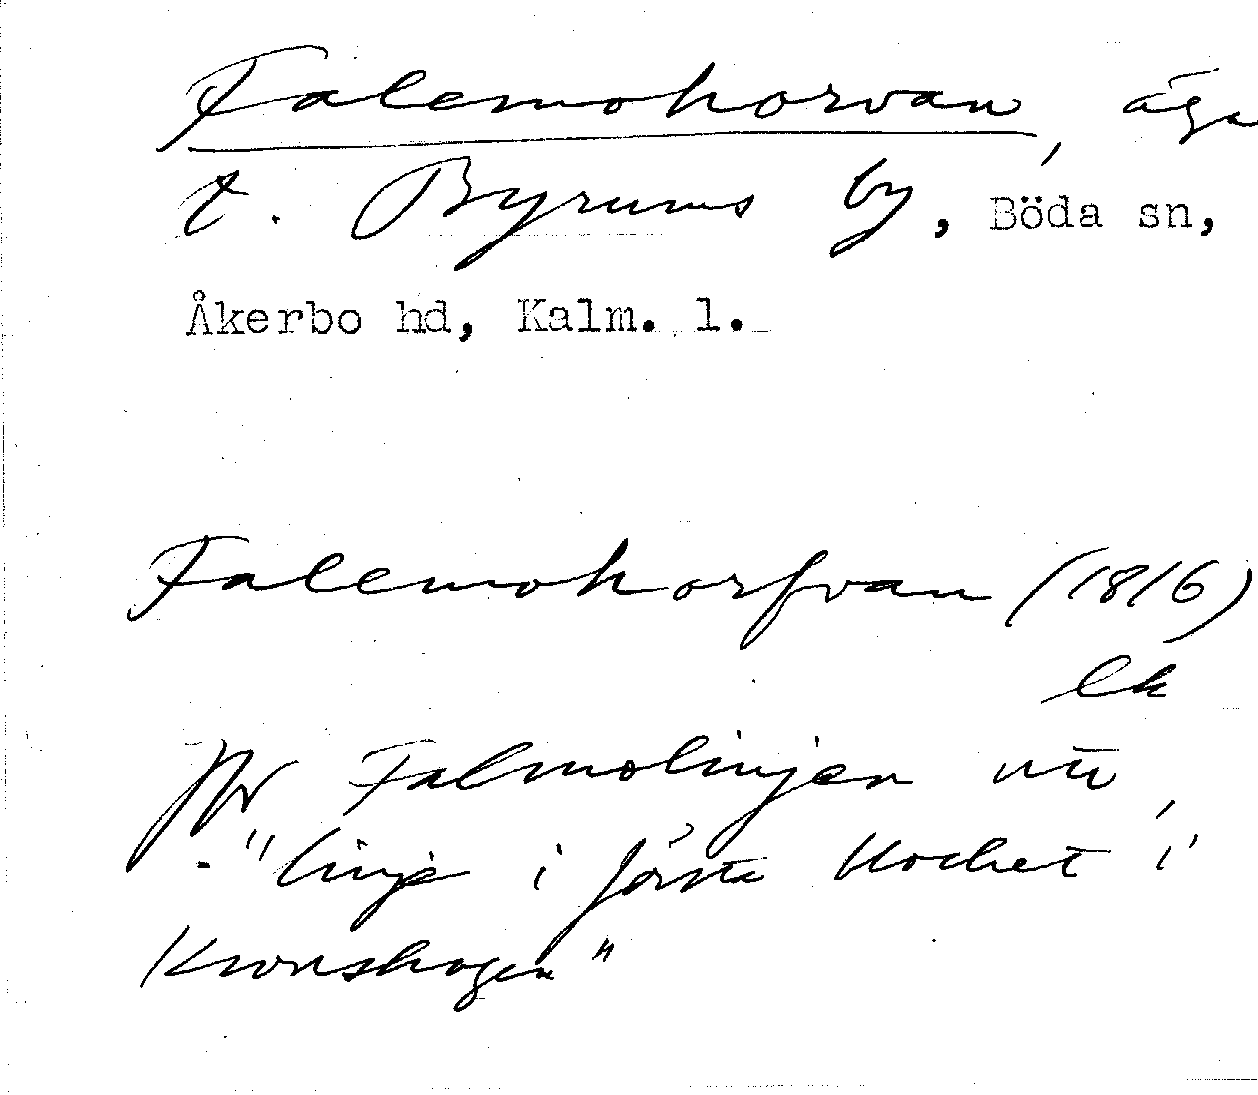 Falemohorvan, äga
t. Byrums by, Böda sn,
Åkerbo hd, Kalm. l.
Falemohorfvan (1816)
lk
Jfr Falmolinjen utt,
- "linje i första blocket i
Kronskogen"